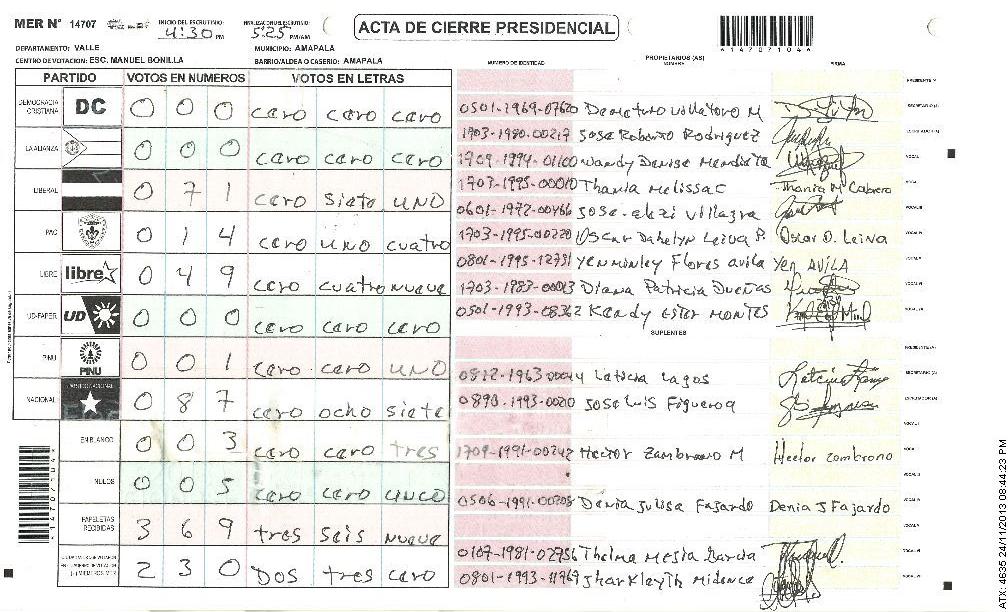 MER N° 14707 INICIO DEL ESCRUTINIO: 4:30 PM FINALIZACION ESCRUTINIO: 5:25 PM/AM ACTA DE CIERRE PRESIDENCIAL
DEPARTAMENTO: VALLE MUNICIPIO: AMAPALA
CENTRO DE VOTACION: ESC. MANUEL BONILLA BARRIO/ALDEA O CASERIO: AMAPALA
PARTIDO VOTOS EN NUMEROS VOTOS EN LETRAS NUMERO DE IDENTIDAD PROPIETARIOS (AS) NOMBRE FIRMA
DEMOCRACIA CRISTIANA DC 0 0 0 cero cero cero
LA ALIANZA 0 0 0 cero cero cero
LIBERAL 0 7 1 cero siete UNO
PAC 0 1 4 cero UNO cuatro
LIBRE libre 0 4 9 cero cuatro nueve
UD-FAPER UD 0 0 0 cero cero cero
PINU PINU 0 0 1 cero cero UNO
NACIONAL 0 8 7 cero ocho siete
EN BLANCO 0 0 3 cero cero tres
NULOS 0 0 5 cero cero cinco
PAPELETAS RECIBIDAS 3 6 9 tres seis nueve
2 3 0 DOS tres cero
0501-1969-07620 Demeturo Villatoro M
1703-1980-00217 Jose Roberto Rodriguez
1709-1994-01100 Wandy Denise Mendieta
1703-1995-00010 Thania Melissa C Thania M Cabrera
0601-1972-00466 Jose Villagra
1703-1995-00220 Oscar Dahelyn Leiva P. Oscar D. Leiva
0801-1995-12751 Yenminley Flores avila Yen AVILA
1703-1983-00013 Diana Patricia Dueñas
0501-1993-08362 Kendy Ester MONTES
SUPLENTES
0812-1963-00044 Leticia Lagos
0890-1993-00210 Jose Luis Figueroa
1709-1991-00242 Hector Zambrano M Hector Zambrano
0506-1991-00205 Denia Julissa Fajardo Denia J Fajardo
0107-1981-02756 Thelma Mesia Garcia
0801-1993-11769 Sharkleyth Midence
ATX: 4635 24/11/2013 08:44:23 PM